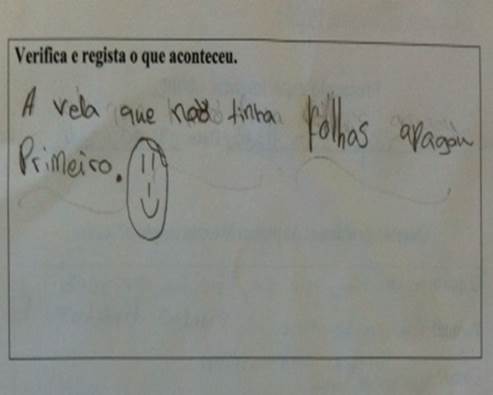 Verifica e regista o que aconteceu.
A vela que não tinha folhas apagou
Primeiro.